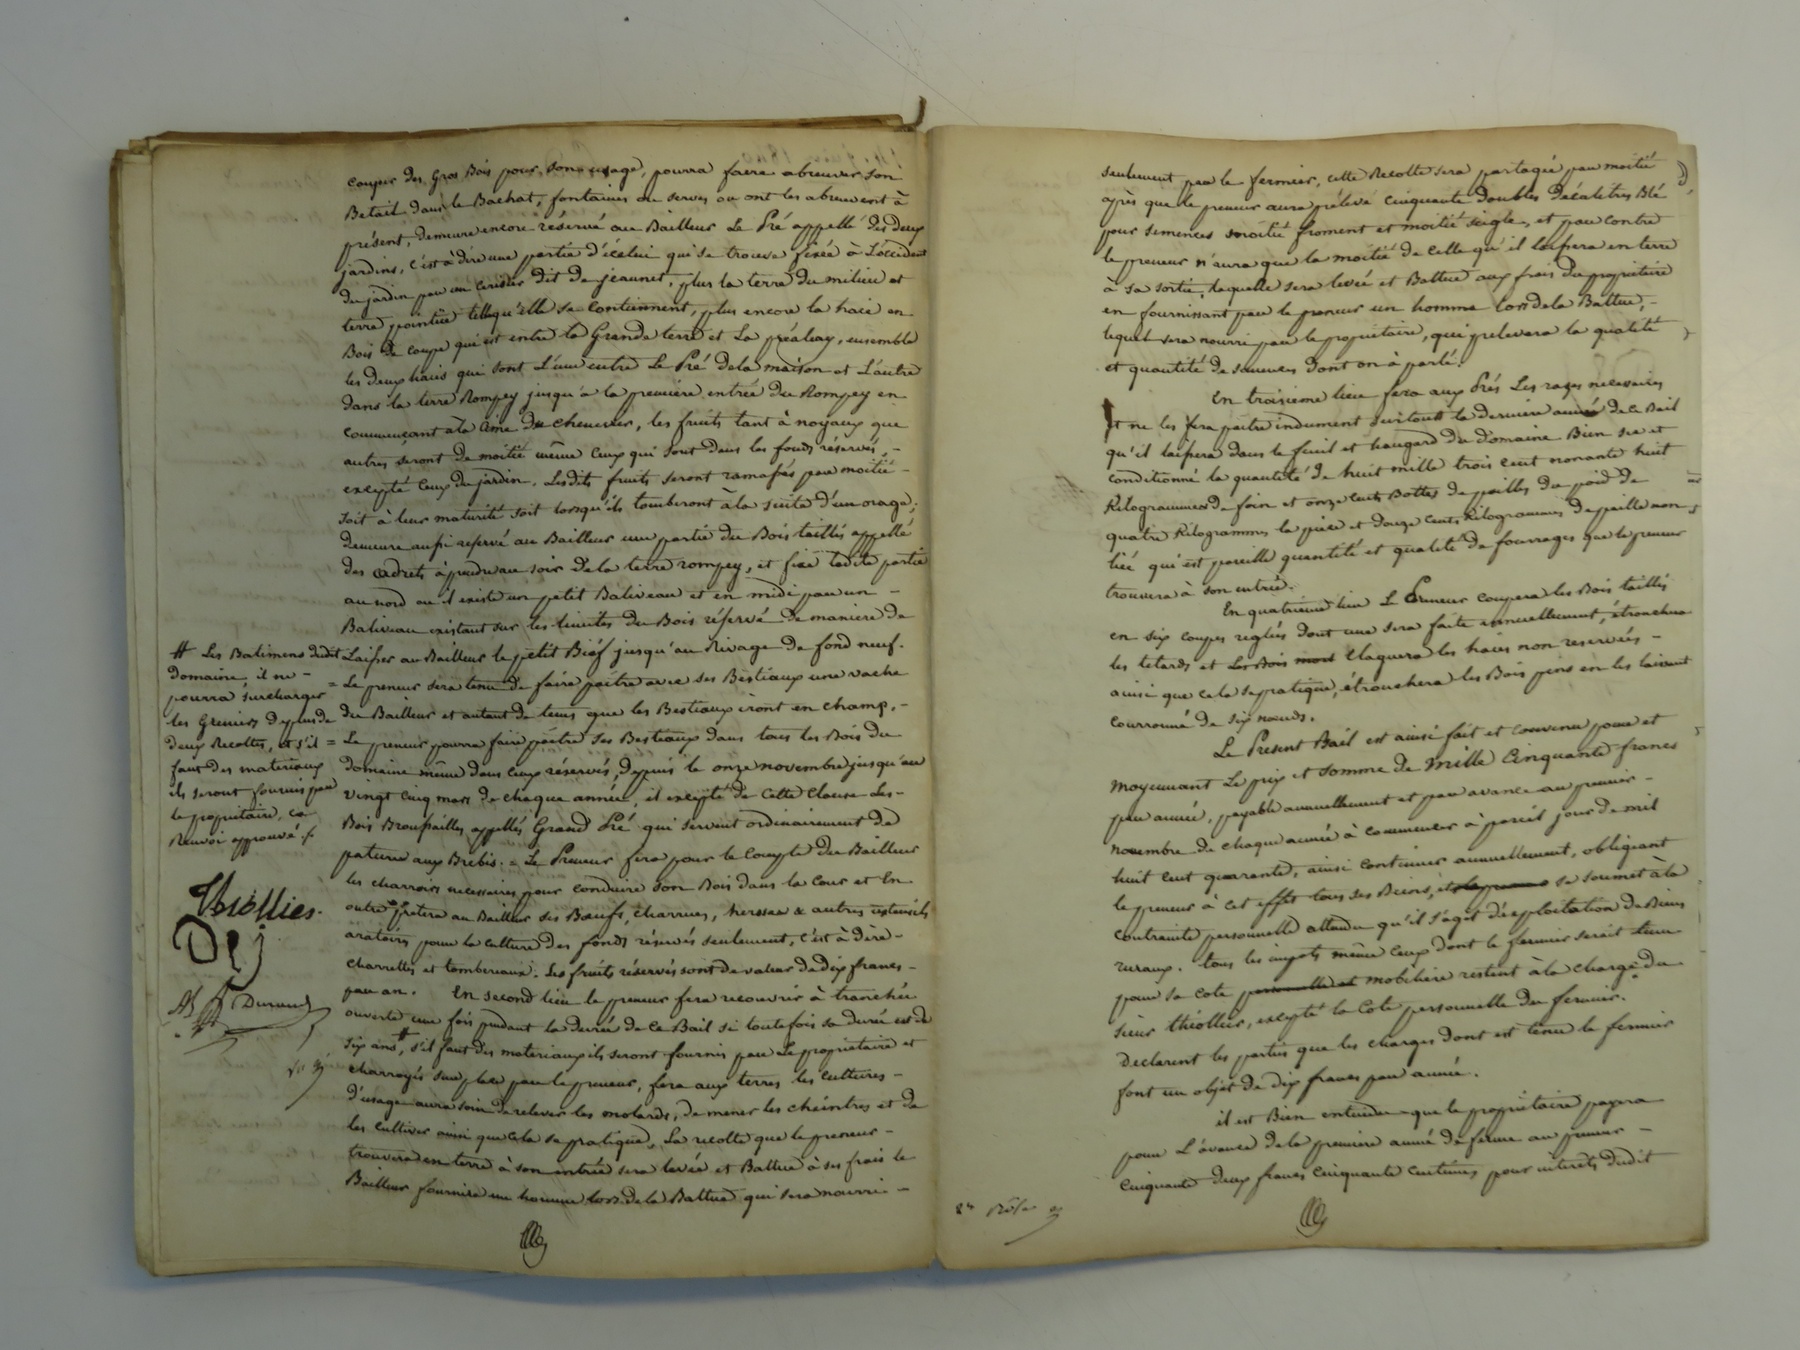 couper des Gros Bois pour son usage, pourra faire abreuver son
Betail dans le Bachat, fontaines ou serves ou ont les abreuvent à
présent, demeure encore réservé au Bailleur Le Pré appellé des deux
jardins, c'est à dire une partie d'icelui qui se trouve fixée à L'occident
du jardin par un cerisier dit de jeaunet, plus la terre du milieu et
terre pointue telle qu'elle se contiennent, plus encore la haie en
Bois de coupe qui est entre la Grande terre et La préalay, ensemble
les deux haies qui sont L'une entre Le Pré de la maison et L'autre
dans la terre Rompey jusqu'à la premiere entrée du Rompey en
commencant à la Cime du chenevier, les fruits tant à noyaux que
autres seront de moitié même ceux qui sont dans les fonds réservés, -
excepté ceux du jardin. Lesdits fruits seront ramassés par moitié -
soit à leur maturité soit lorsqu'ils tomberont à la suite d'un orage;
demeure aussi reservé au Bailleur une partie du Bois taillis appellé
des adrets à prendre au soir de la terre rompey, et fixé ladite partie
au nord ou il existe un petit Baliveau et en midi par un -
Baliveau existant sur les limites du Bois réservé de maniere de
Laisser au Bailleur le petit Bief jusqu'au Rivage de fond neuf.
= Le preneur sera tenu de faire paître avec ses Bestiaux une vache
du Bailleur et autant de tems que les Bestiaux iront en champ, -
= Le preneur pourra faire paître ses Bestiaux dans tous les Bois du
domaine même dans ceux réservés, depuis le onze novembre jusqu'au
vingt cinq mars de chaque année, il excepté de cette Clause Les -
Bois Broussailles appellés Grand Pré qui servent ordinairement de
pature aux Brebis. = Le Preneur fera pour le Compte du Bailleur
les charrois necessaires pour conduire son Bois dans la Cour et En
outre pretera au Bailleur ses Bœufs, charrues, herses & autres ustensils
aratoirs pour la culture des fonds réservés seulement, c'est à dire -
charrettes et tombereaux. Les fruits réservés sont de valeur de dix francs -
par an. En second lieu le preneur fera recouvrir à tranchée
ouverte une fois pendant la durée de ce Bail si toutefois sa durée est de
six ans #, s'il faut des materiaux ils seront fournis par Le propriétaire et
charroyés sur place par le preneur, fera aux terres les cultures -
d'usage aura soin de relever les molards, de mener les cheintres et de
les cultiver ainsi que cela se pratique, La recolte que le preneur -
trouvera en terre à son entrée sera levée et Battue à ses frais le
Bailleur fournira un homme lors de la Battue qui sera nourri -
# Les Batimens dudit
domaine, il ne -
pourra surcharger
les Greniers de plus de
deux Recoltes, et s'il
faut des materiaux
ils seront fournis par
le propriétaire, ce
Renvoi approuvé ./.
Thiollier.
Dej
Durand
seulement par le fermier, cette Recolte sera partagée par moitié
après que le preneur aura prélevé cinquante doubles Décalitres Blé
pour semences moitié froment et moitié seigle, et par contre
le preneur n'aura que la moitié de celle qu'il laissera en terre
à sa sortie, laquelle sera levée et Battue aux frais du propriétaire
en fournissant par le preneur un homme lors de la Battue, -
lequel sera nourri par le propriétaire, qui prelevera la qualité
et quantité de semences dont on à parlé.
En troisieme lieu fera aux Prés Les razes necessaires
Et ne les fera paître indument surtout la derniere année de ce Bail
qu'il laissera dans le fenil et hangard du domaine Bien sec et
conditionné la quantité de huit mille trois cent nonante huit
Kilogrammes de foin et onze cents Bottes de pailles du poid de
quatre Kilogrammes la piece et douze cents Kilogrammes de paille non
liée qui est pareille quantité et qualité de fourrages que le preneur
trouvera à son entrée.
En quatrieme lieu Le Preneur coupera les Bois taillis
en six coupes reglées dont une sera faite annuellement, étronchera
les tetards et Les Bois mort Elaguera les haies non reservées -
ainsi que cela se pratique, étronchera les Bois pins en les laissant
courronné de six nœuds.
Le Present Bail est ainsi fait et convenu pour et
moyennant Le prix et somme de Mille Cinquante francs
par année, payable annuellement et par avance au premier -
novembre de chaque année à commencer à pareil jour de mil
huit cent quarante, ainsi continuer annuellement, obligeant
le preneur à cet effet tous ses Biens, et se soumet à la
contrainte personnelle attendu qu'il s'agit d'exploitation de Biens
ruraux. tous les impots même ceux dont le fermier serait tenu
pour sa cote personnelle et mobiliere restent à la charge du
sieur thiollier, excepté la Cote personnelle du fermier.
Declarent les parties que les charges dont est tenu le fermier
font un objet de dix francs par année.
il est Bien entendu que le propriétaire payera
pour L'avance de la premiere année de ferme au preneur -
Cinquante deux francs cinquante centimes pour interets dudit
2e Rôle